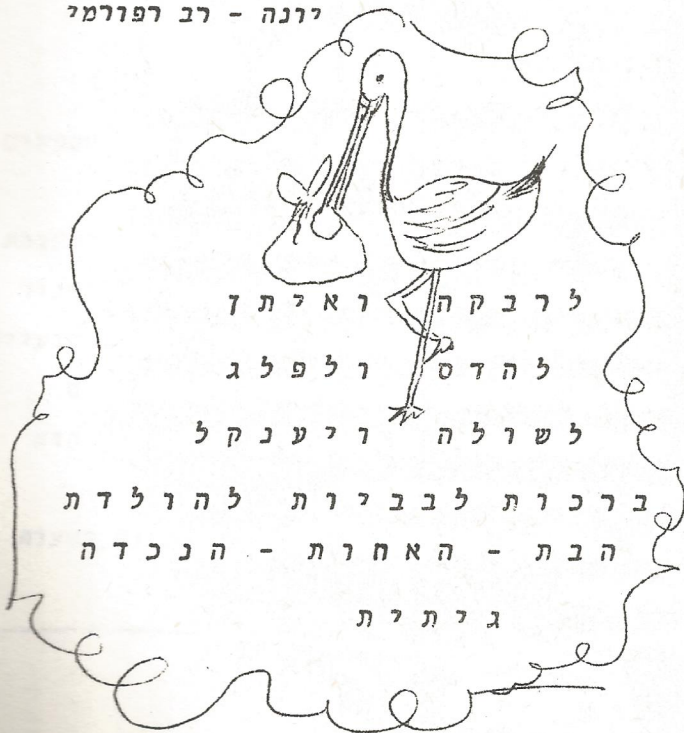 יונה - רב רפורמי
לרבקה ואיתן
להדס ולפלג
לשולה ויענקל
ברכות לבביות להולדת
הבת - האחות - הנכדה
גיתית